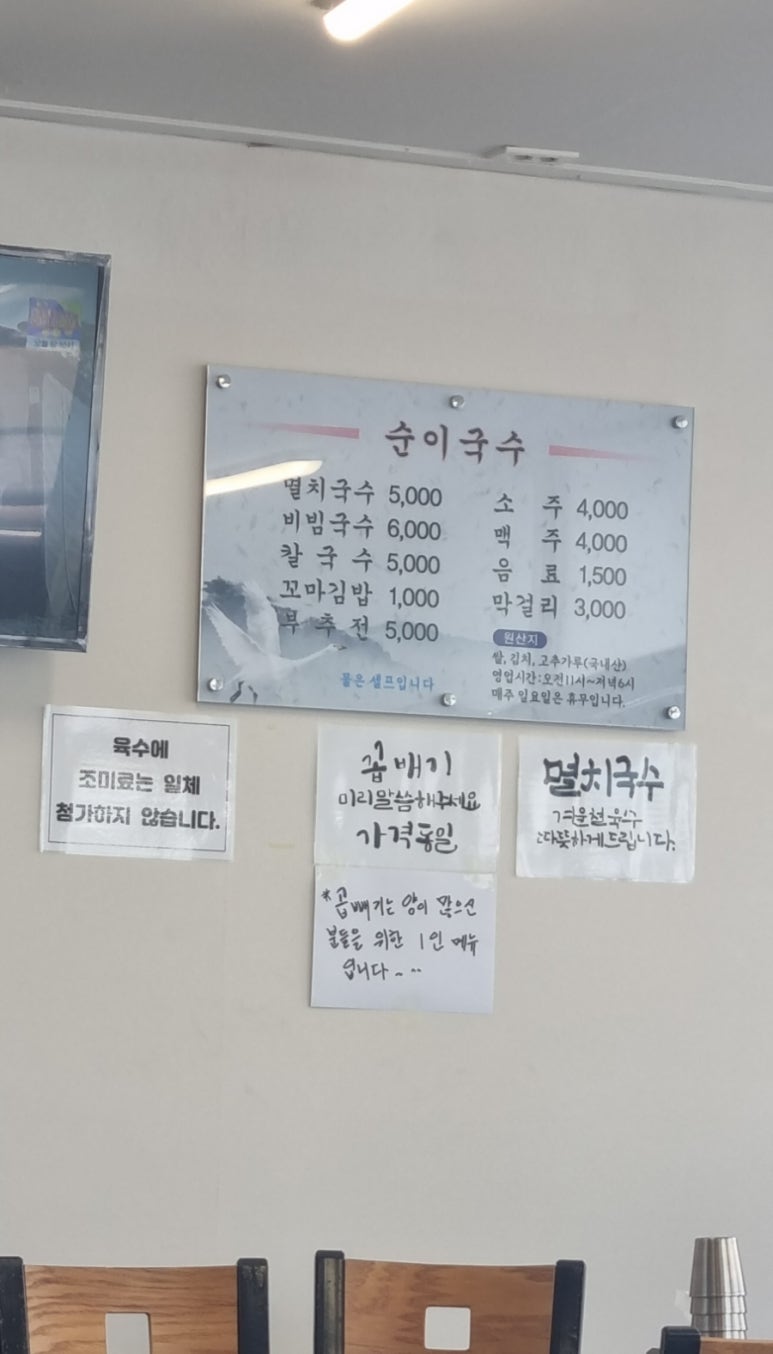 순이국수
멸치국수 5,000
비빔국수 6,000
칼국수 5,000
꼬마김밥 1,000
부추전 5,000
물은 셀프입니다
소주 4,000
맥주 4,000
음료 1,500
막걸리 3,000
원산지
쌀, 김치, 고추가루(국내산)
영업시간:오전11시~저녁6시
매주 일요일은 휴무입니다.
육수에
조미료는 일체
첨가하지 않습니다.
곱배기
미리말씀해주세요
가격동일
*곱빼기는 양이 많으신
분들을 위한 1인 메뉴
입니다~
멸치국수
겨울철육수
따뜻하게드립니다.